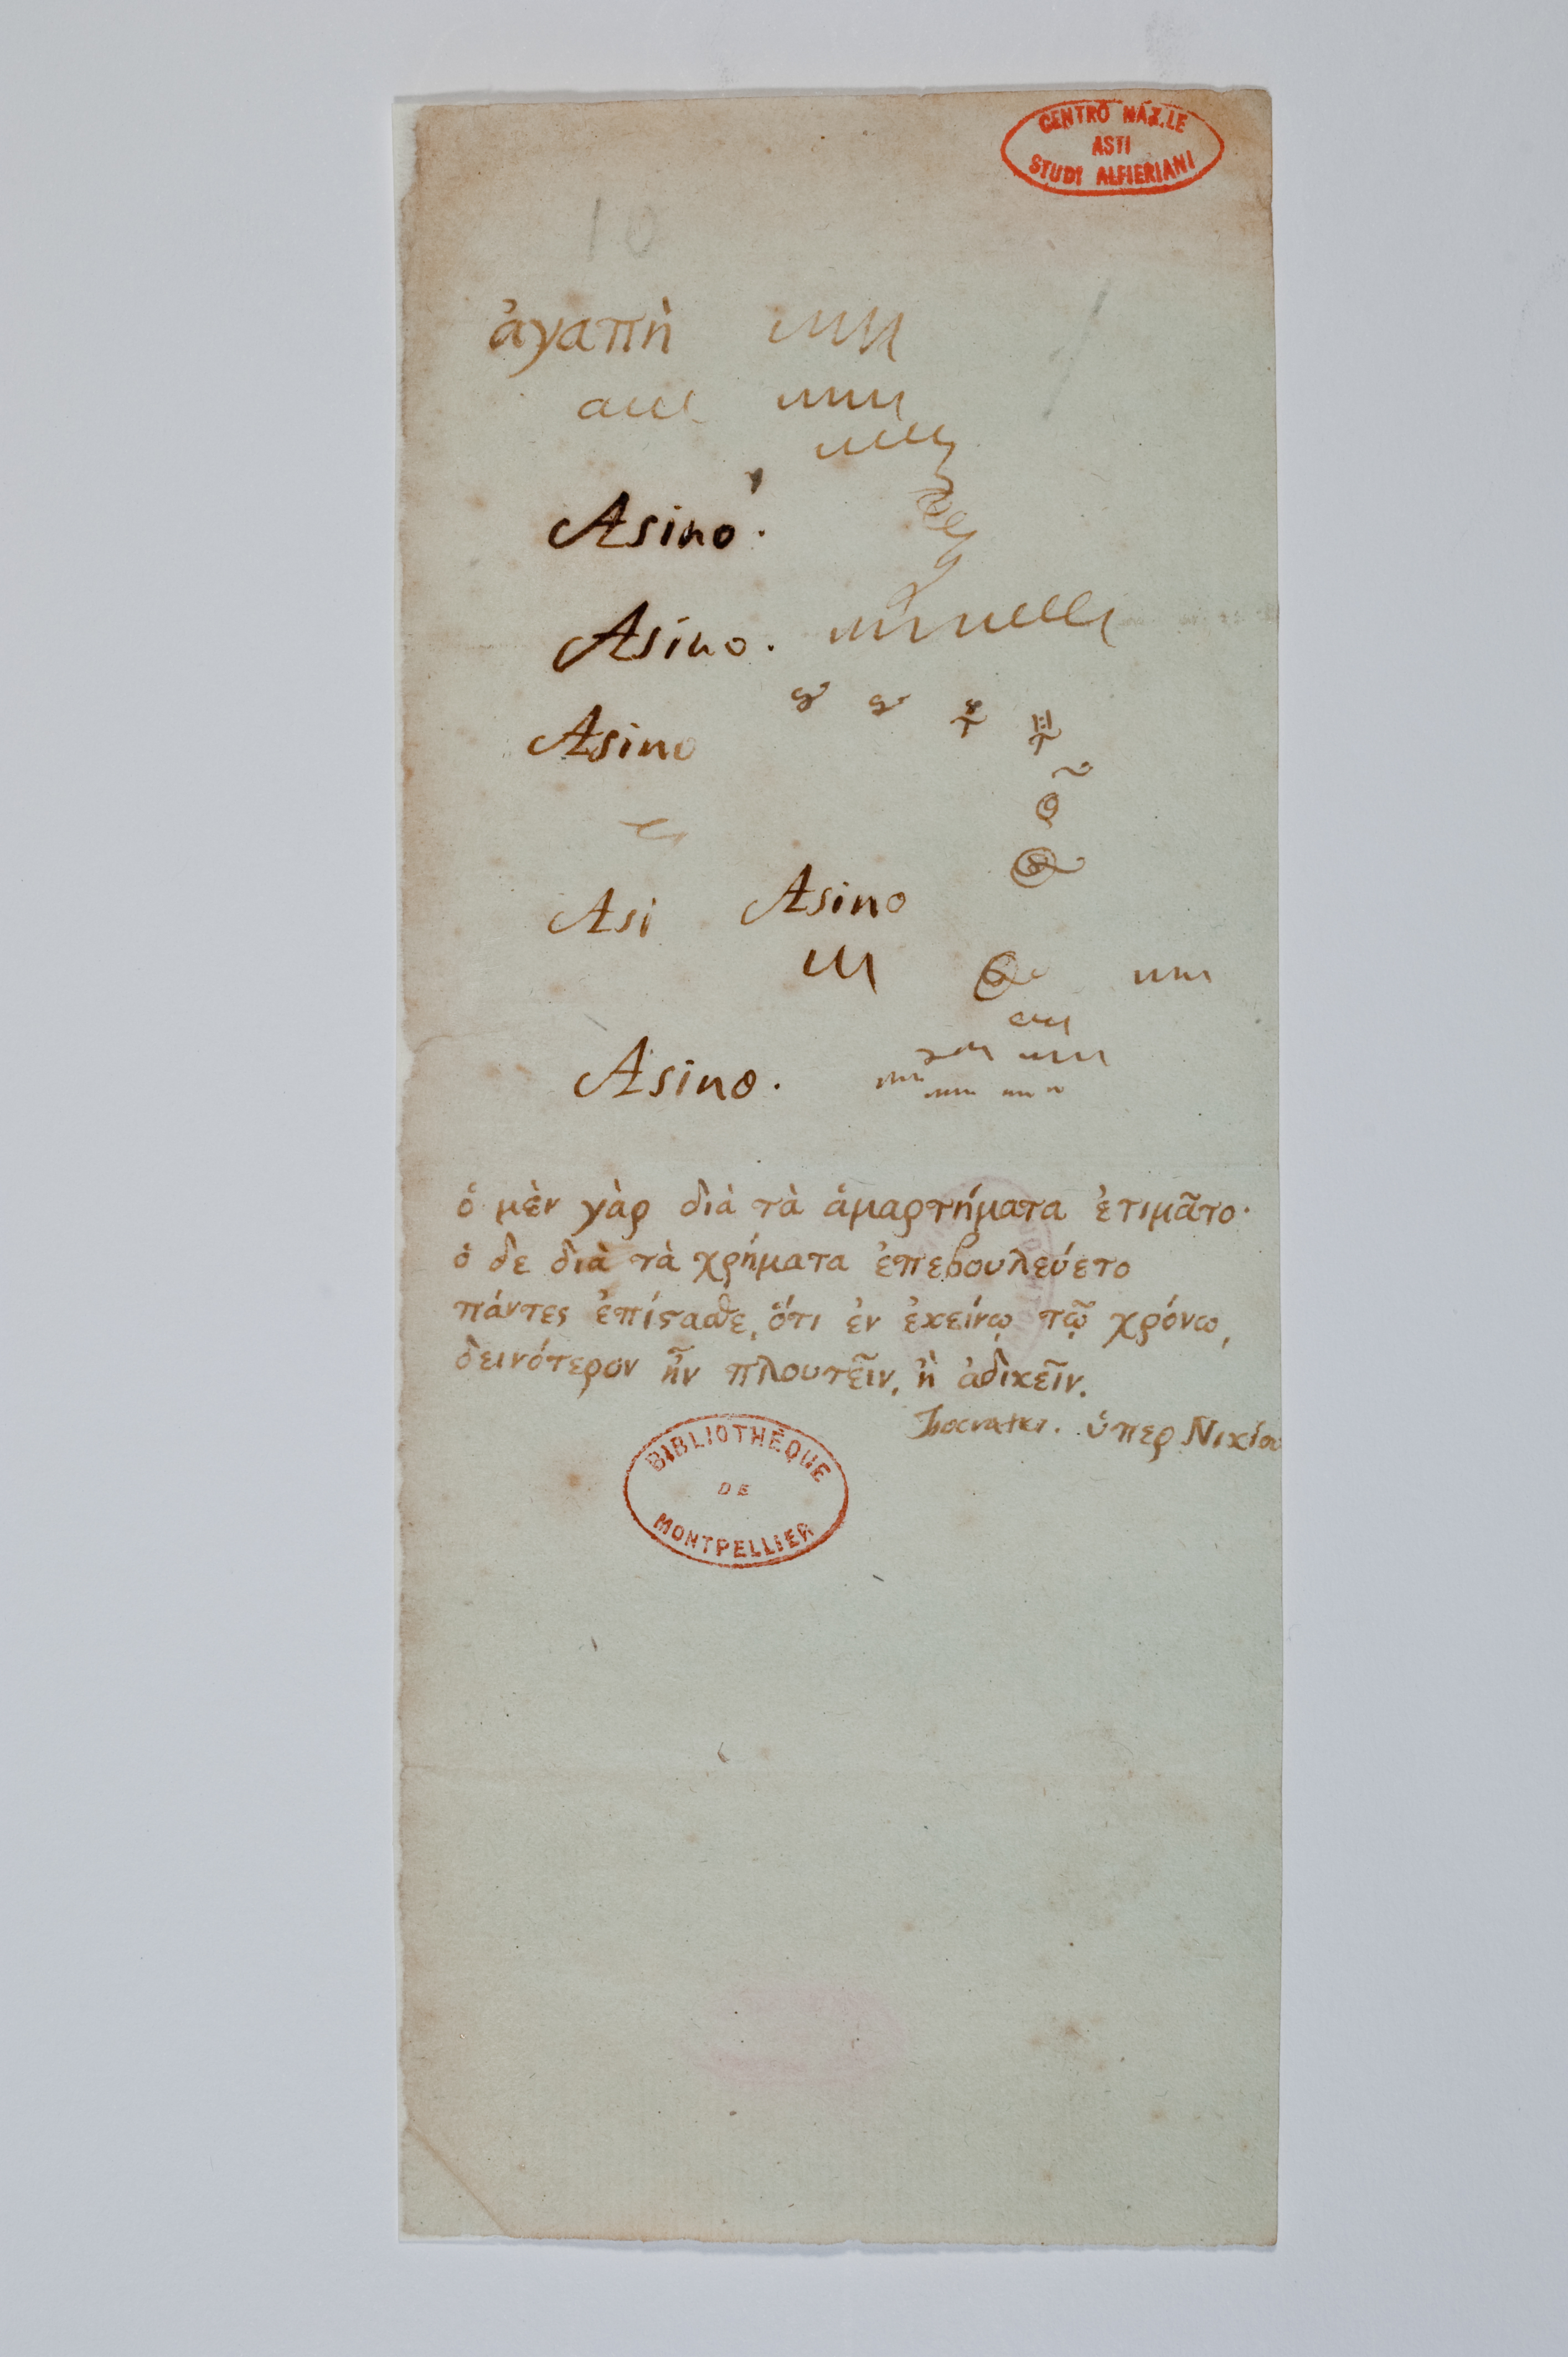 CENTRO NAZ.LE
ASTI
STUDI ALFIERIANI
10
ἀγαπὴ
Asino.
Asino.
Asino
Asi Asino
Asino.
ὁ μὲν γὰρ διὰ τὰ ἁμαρτήματα ἐτιμᾶτο·
ὁ δε διὰ τὰ χρήματα ἐπεβουλεύετο
πάντες ἐπίϛασθε, ὅτι ἐν ἐκείνῳ τῷ χρόνω,
δεινότερον ἦν πλουτεῖν, ἢ ἀδικεῖν.
Isocrates. ὑπερ Νικίου
BIBLIOTHÈQUE
DE
MONTPELLIER